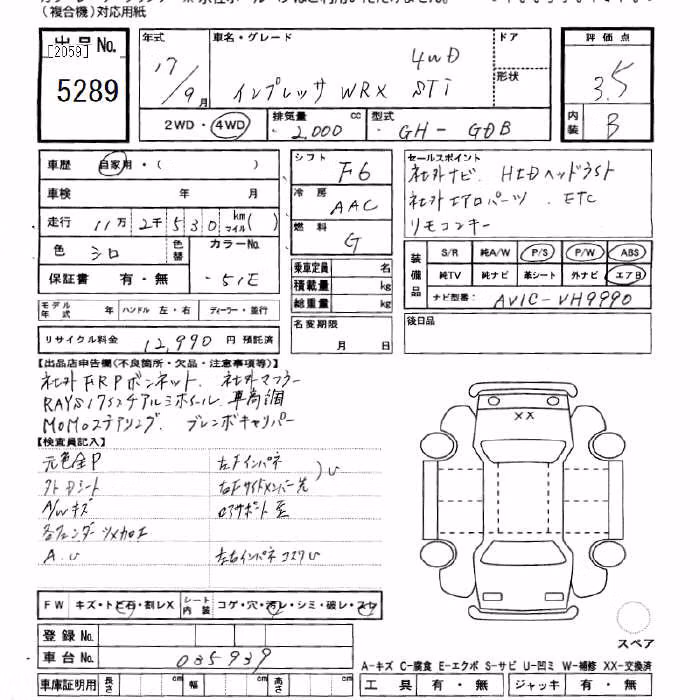 （複合機）対応用紙
出品No.
[2059]
5289
年式
17/9月
車名・グレード
4WD
インプレッサ WRX STi
ドア
形状
評価点
3.5
内装
B
2WD・4WD
排気量
2,000 cc
型式
GH-GDB
車歴 自家用・（ ）
車検 年 月
走行 11万2千530 km マイル( )
色 シロ
色替
カラーNo.
51E
保証書 有・無
シフト F6
冷房 AAC
燃料 G
乗車定員 名
積載量 kg
総重量 kg
セールスポイント
社外ナビ. HIDヘッドライト
社外エアロパーツ. ETC
リモコンキー
装備品
S/R 純A/W P/S P/W ABS
純TV 純ナビ 革シート 外ナビ エアB
ナビ型番: AVIC-VH9990
モデル年式 年 ハンドル 左・右 ディーラー・並行
リサイクル料金 12,990円 預託済
名変期限
月 日
後日品
【出品店申告欄(不良箇所・欠品・注意事項等)】
社外FRPボンネット. 社外マフラー
RAYS17インチアルミホイール. 車高調
MOMOステアリング. ブレンボキャリパー
【検査員記入】
元色全P
左Fインパネ
A/Wキズ
各フェンダーツメカロエ
FW キズ・トビ石・割レX
シート内装 コゲ・穴・汚レ・シミ・破レ・スレ
登録No.
車台No. 035939
車庫証明用 長さ cm 幅 cm 高さ cm
XX
スペア
A-キズ C-腐食 E-エクボ S-サビ U-凹ミ W-補修 XX-交換済
工具 有・無 ジャッキ 有・無